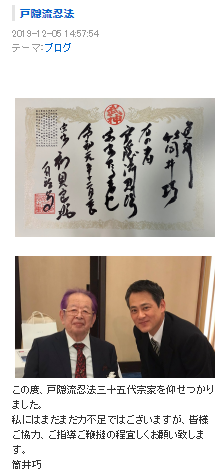 戸隠流忍法
2019-12-05 14:57:54
テーマ:ブログ
筒井巧
右の者
令和元年十二月
この度、戸隠流忍法三十五代宗家を仰せつかり
ました。
私にはまだまだ力不足ではございますが、皆様
ご協力、ご指導ご鞭撻の程宜しくお願い致しま
す。
筒井巧